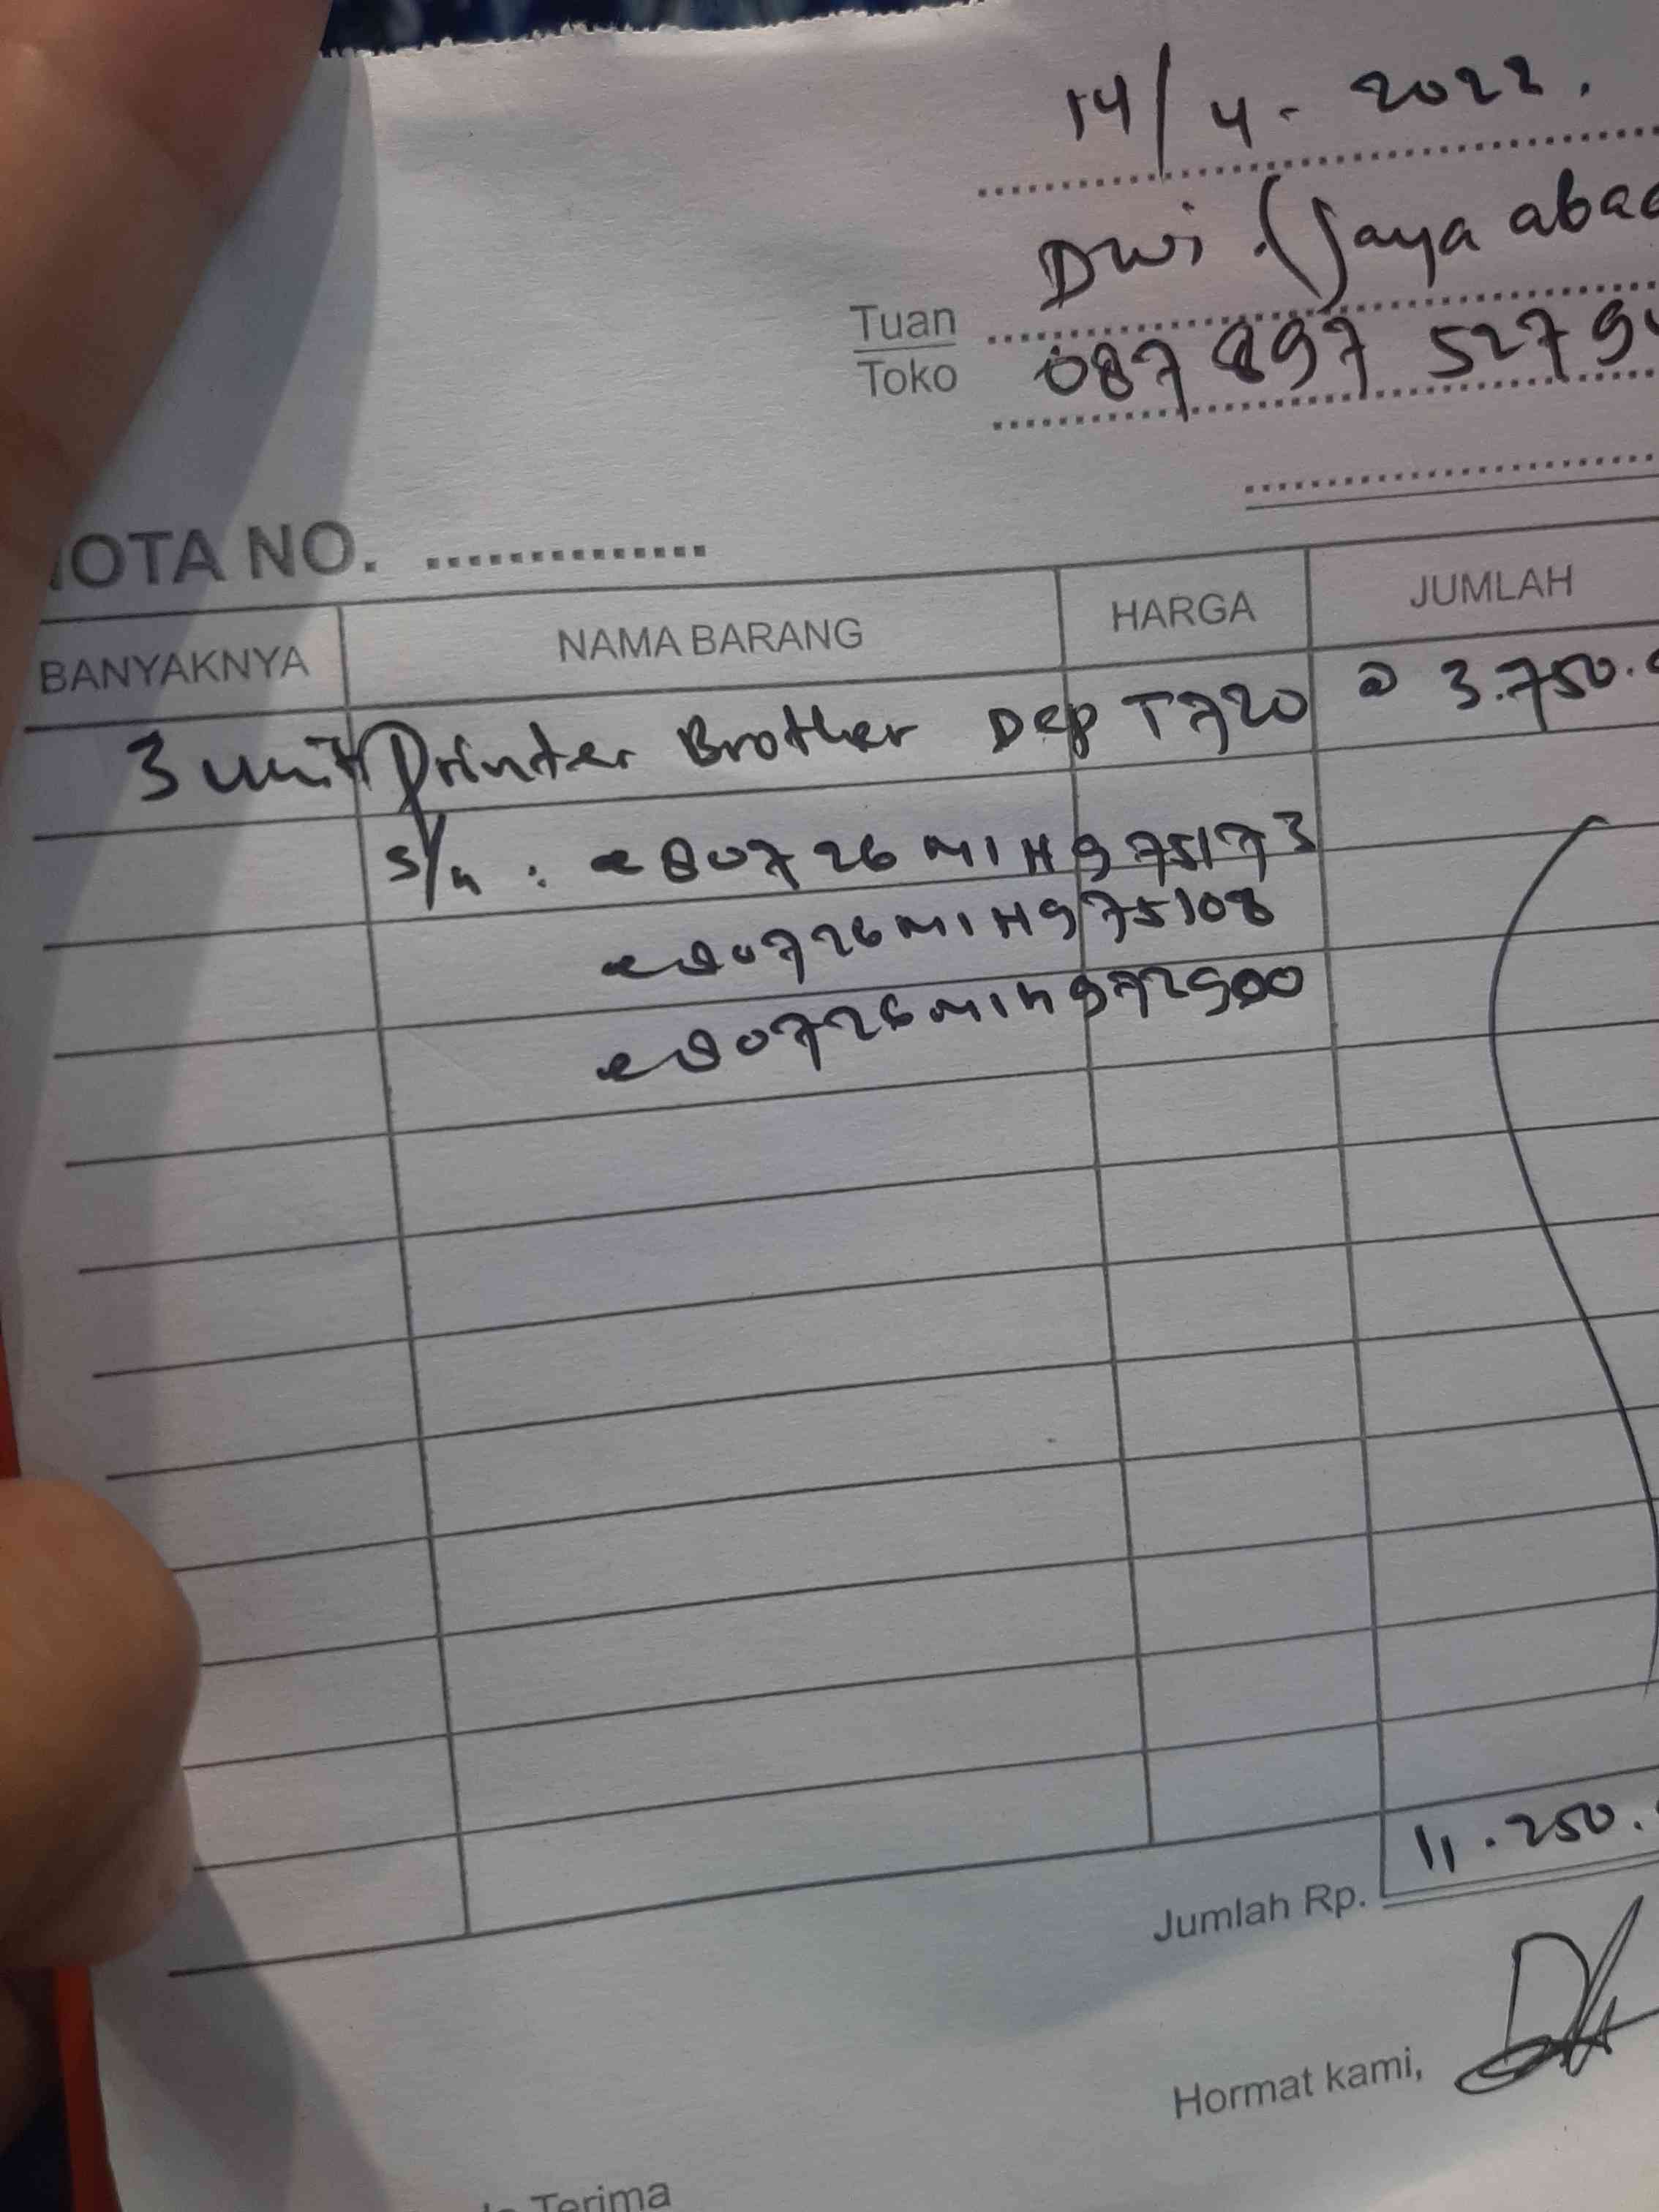 14/4-2022.
Dwi (Jaya abad
Tuan
Toko
087 897 5279
NOTA NO. ..............
BANYAKNYA NAMA BARANG HARGA JUMLAH
3 unit Printer Brother Dcp T720 @ 3.750.
s/n : e80726M1H975173
e80726M1H975108
e80726M1H972900
Jumlah Rp. 11.250.
Hormat kami,
Terima